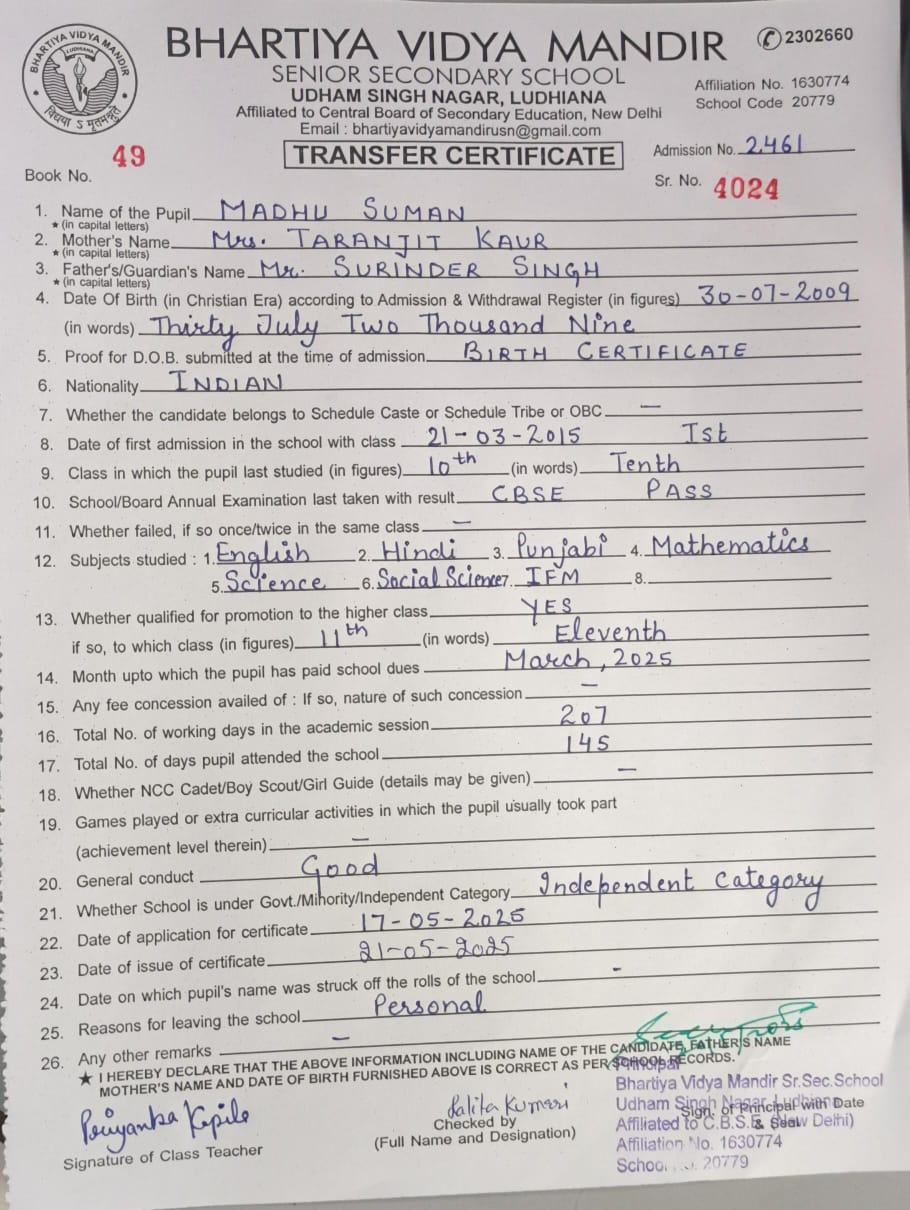 BHARTIYA VIDYA MANDIR
LUDHIANA
विद्यया S मृतमश्नुते
BHARTIYA VIDYA MANDIR
2302660
SENIOR SECONDARY SCHOOL
UDHAM SINGH NAGAR, LUDHIANA
Affiliated to Central Board of Secondary Education, New Delhi
Email : bhartiyavidyamandirusn@gmail.com
Affiliation No. 1630774
School Code 20779
TRANSFER CERTIFICATE
Admission No. 2461
Book No. 49
Sr. No. 4024
1. Name of the Pupil MADHU SUMAN
★(in capital letters)
2. Mother's Name Mrs. TARANJIT KAUR
★(in capital letters)
3. Father's/Guardian's Name Mr. SURINDER SINGH
★(in capital letters)
4. Date Of Birth (in Christian Era) according to Admission & Withdrawal Register (in figures) 30-07-2009
(in words) Thirty July Two Thousand Nine
5. Proof for D.O.B. submitted at the time of admission BIRTH CERTIFICATE
6. Nationality INDIAN
7. Whether the candidate belongs to Schedule Caste or Schedule Tribe or OBC —
8. Date of first admission in the school with class 21-03-2015 Ist
9. Class in which the pupil last studied (in figures) 10th (in words) Tenth
10. School/Board Annual Examination last taken with result CBSE PASS
11. Whether failed, if so once/twice in the same class —
12. Subjects studied : 1. English 2. Hindi 3. Punjabi 4. Mathematics
5. Science 6. Social Science 7. IFM 8.
13. Whether qualified for promotion to the higher class YES
if so, to which class (in figures) 11th (in words) Eleventh
14. Month upto which the pupil has paid school dues March, 2025
15. Any fee concession availed of : If so, nature of such concession —
16. Total No. of working days in the academic session 207
17. Total No. of days pupil attended the school 145
18. Whether NCC Cadet/Boy Scout/Girl Guide (details may be given) —
19. Games played or extra curricular activities in which the pupil usually took part
(achievement level therein) —
20. General conduct Good
21. Whether School is under Govt./Mihority/Independent Category Independent Category
22. Date of application for certificate 17-05-2025
23. Date of issue of certificate 21-05-2025
24. Date on which pupil's name was struck off the rolls of the school -
25. Reasons for leaving the school Personal
26. Any other remarks —
★ I HEREBY DECLARE THAT THE ABOVE INFORMATION INCLUDING NAME OF THE CANDIDATE, FATHER'S NAME
MOTHER'S NAME AND DATE OF BIRTH FURNISHED ABOVE IS CORRECT AS PER SCHOOL RECORDS.
Principal
Bhartiya Vidya Mandir Sr.Sec.School
Udham Singh Nagar, Ludhiana
Sign. of Principal with Date
Affiliated to C.B.S.E. New Delhi)
& Seal
Affiliation No. 1630774
School No. 20779
Priyanka Kapila
Signature of Class Teacher
Lalita Kumari
Checked by
(Full Name and Designation)